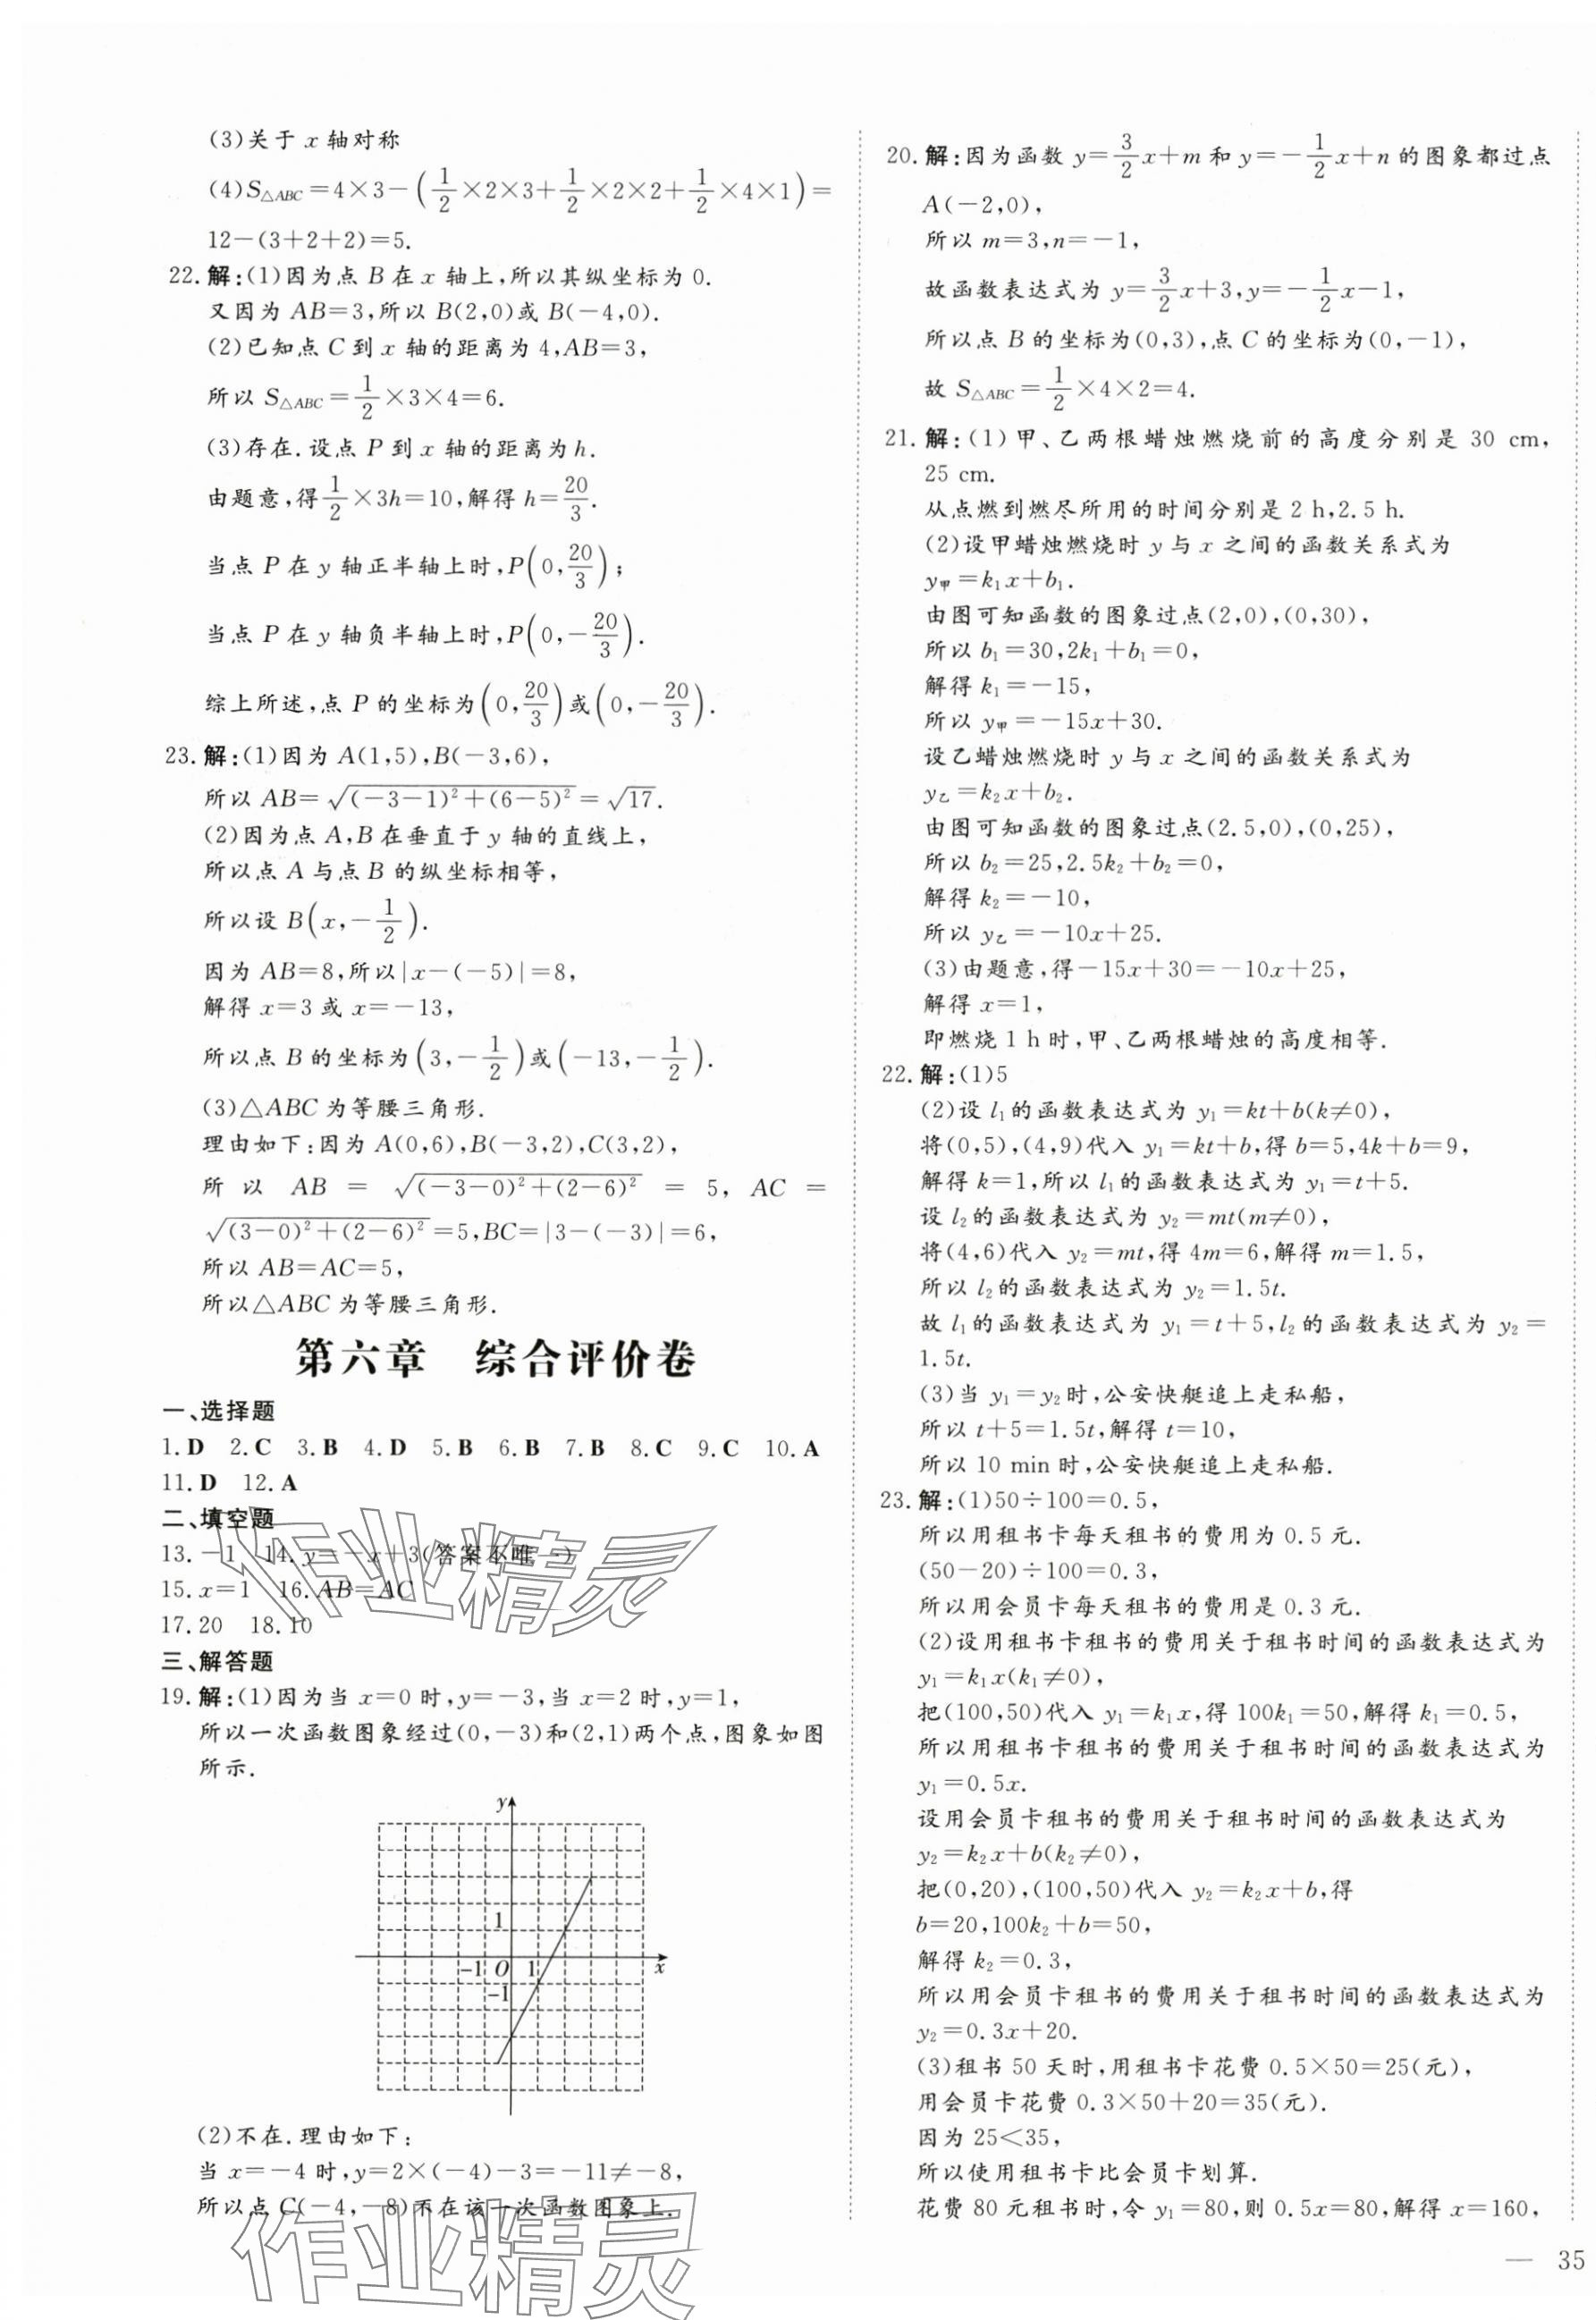 (3)关于 x 轴对称
(4)S△ABC=4×3-(1/2×2×3+1/2×2×2+1/2×4×1)=
12-(3+2+2)=5.
22.解:(1)因为点 B 在 x 轴上,所以其纵坐标为 0.
又因为 AB=3,所以 B(2,0)或 B(-4,0).
(2)已知点 C 到 x 轴的距离为 4,AB=3,
所以 S△ABC=1/2×3×4=6.
(3)存在.设点 P 到 x 轴的距离为 h.
由题意,得1/2×3h=10,解得 h=20/3.
当点 P 在 y 轴正半轴上时,P(0,20/3);
当点 P 在 y 轴负半轴上时,P(0,-20/3).
综上所述,点 P 的坐标为(0,20/3)或(0,-20/3).
23.解:(1)因为 A(1,5),B(-3,6),
所以 AB=√((-3-1)²+(6-5)²)=√17.
(2)因为点 A,B 在垂直于 y 轴的直线上,
所以点 A 与点 B 的纵坐标相等,
所以设 B(x,-1/2).
因为 AB=8,所以|x-(-5)|=8,
解得 x=3 或 x=-13,
所以点 B 的坐标为(3,-1/2)或(-13,-1/2).
(3)△ABC 为等腰三角形.
理由如下:因为 A(0,6),B(-3,2),C(3,2),
所以 AB = √((-3-0)²+(2-6)²) = 5, AC =
√((3-0)²+(2-6)²)=5,BC=|3-(-3)|=6,
所以 AB=AC=5,
所以△ABC 为等腰三角形.
第六章 综合评价卷
一、选择题
1.D 2.C 3.B 4.D 5.B 6.B 7.B 8.C 9.C 10.A
11.D 12.A
二、填空题
13.-1 14.y=-x+3(答案不唯一)
15.x=1 16.AB=AC
17.20 18.10
三、解答题
19.解:(1)因为当 x=0 时,y=-3,当 x=2 时,y=1,
所以一次函数图象经过(0,-3)和(2,1)两个点,图象如图
所示.
y
1
-1 O 1 x
-1
(2)不在.理由如下:
当 x=-4 时,y=2×(-4)-3=-11≠-8,
所以点 C(-4,-8)不在该一次函数图象上.
20.解:因为函数 y=3/2x+m 和 y=-1/2x+n 的图象都过点
A(-2,0),
所以 m=3,n=-1,
故函数表达式为 y=3/2x+3,y=-1/2x-1,
所以点 B 的坐标为(0,3),点 C 的坐标为(0,-1),
故 S△ABC=1/2×4×2=4.
21.解:(1)甲、乙两根蜡烛燃烧前的高度分别是 30 cm,
25 cm.
从点燃到燃尽所用的时间分别是 2 h,2.5 h.
(2)设甲蜡烛燃烧时 y 与 x 之间的函数关系式为
y甲=k₁x+b₁.
由图可知函数的图象过点(2,0),(0,30),
所以 b₁=30,2k₁+b₁=0,
解得 k₁=-15,
所以 y甲=-15x+30.
设乙蜡烛燃烧时 y 与 x 之间的函数关系式为
y乙=k₂x+b₂.
由图可知函数的图象过点(2.5,0),(0,25),
所以 b₂=25,2.5k₂+b₂=0,
解得 k₂=-10,
所以 y乙=-10x+25.
(3)由题意,得-15x+30=-10x+25,
解得 x=1,
即燃烧 1 h 时,甲、乙两根蜡烛的高度相等.
22.解:(1)5
(2)设 l₁的函数表达式为 y₁=kt+b(k≠0),
将(0,5),(4,9)代入 y₁=kt+b,得 b=5,4k+b=9,
解得 k=1,所以 l₁的函数表达式为 y₁=t+5.
设 l₂的函数表达式为 y₂=mt(m≠0),
将(4,6)代入 y₂=mt,得 4m=6,解得 m=1.5,
所以 l₂的函数表达式为 y₂=1.5t.
故 l₁的函数表达式为 y₁=t+5,l₂的函数表达式为 y₂=
1.5t.
(3)当 y₁=y₂时,公安快艇追上走私船,
所以 t+5=1.5t,解得 t=10,
所以 10 min 时,公安快艇追上走私船.
23.解:(1)50÷100=0.5,
所以用租书卡每天租书的费用为 0.5 元.
(50-20)÷100=0.3,
所以用会员卡每天租书的费用是 0.3 元.
(2)设用租书卡租书的费用关于租书时间的函数表达式为
y₁=k₁x(k₁≠0),
把(100,50)代入 y₁=k₁x,得 100k₁=50,解得 k₁=0.5,
所以用租书卡租书的费用关于租书时间的函数表达式为
y₁=0.5x.
设用会员卡租书的费用关于租书时间的函数表达式为
y₂=k₂x+b(k₂≠0),
把(0,20),(100,50)代入 y₂=k₂x+b,得
b=20,100k₂+b=50,
解得 k₂=0.3,
所以用会员卡租书的费用关于租书时间的函数表达式为
y₂=0.3x+20.
(3)租书 50 天时,用租书卡花费 0.5×50=25(元),
用会员卡花费 0.3×50+20=35(元).
因为 25<35,
所以使用租书卡比会员卡划算.
花费 80 元租书时,令 y₁=80,则 0.5x=80,解得 x=160,
— 35
作业精灵
作业精灵